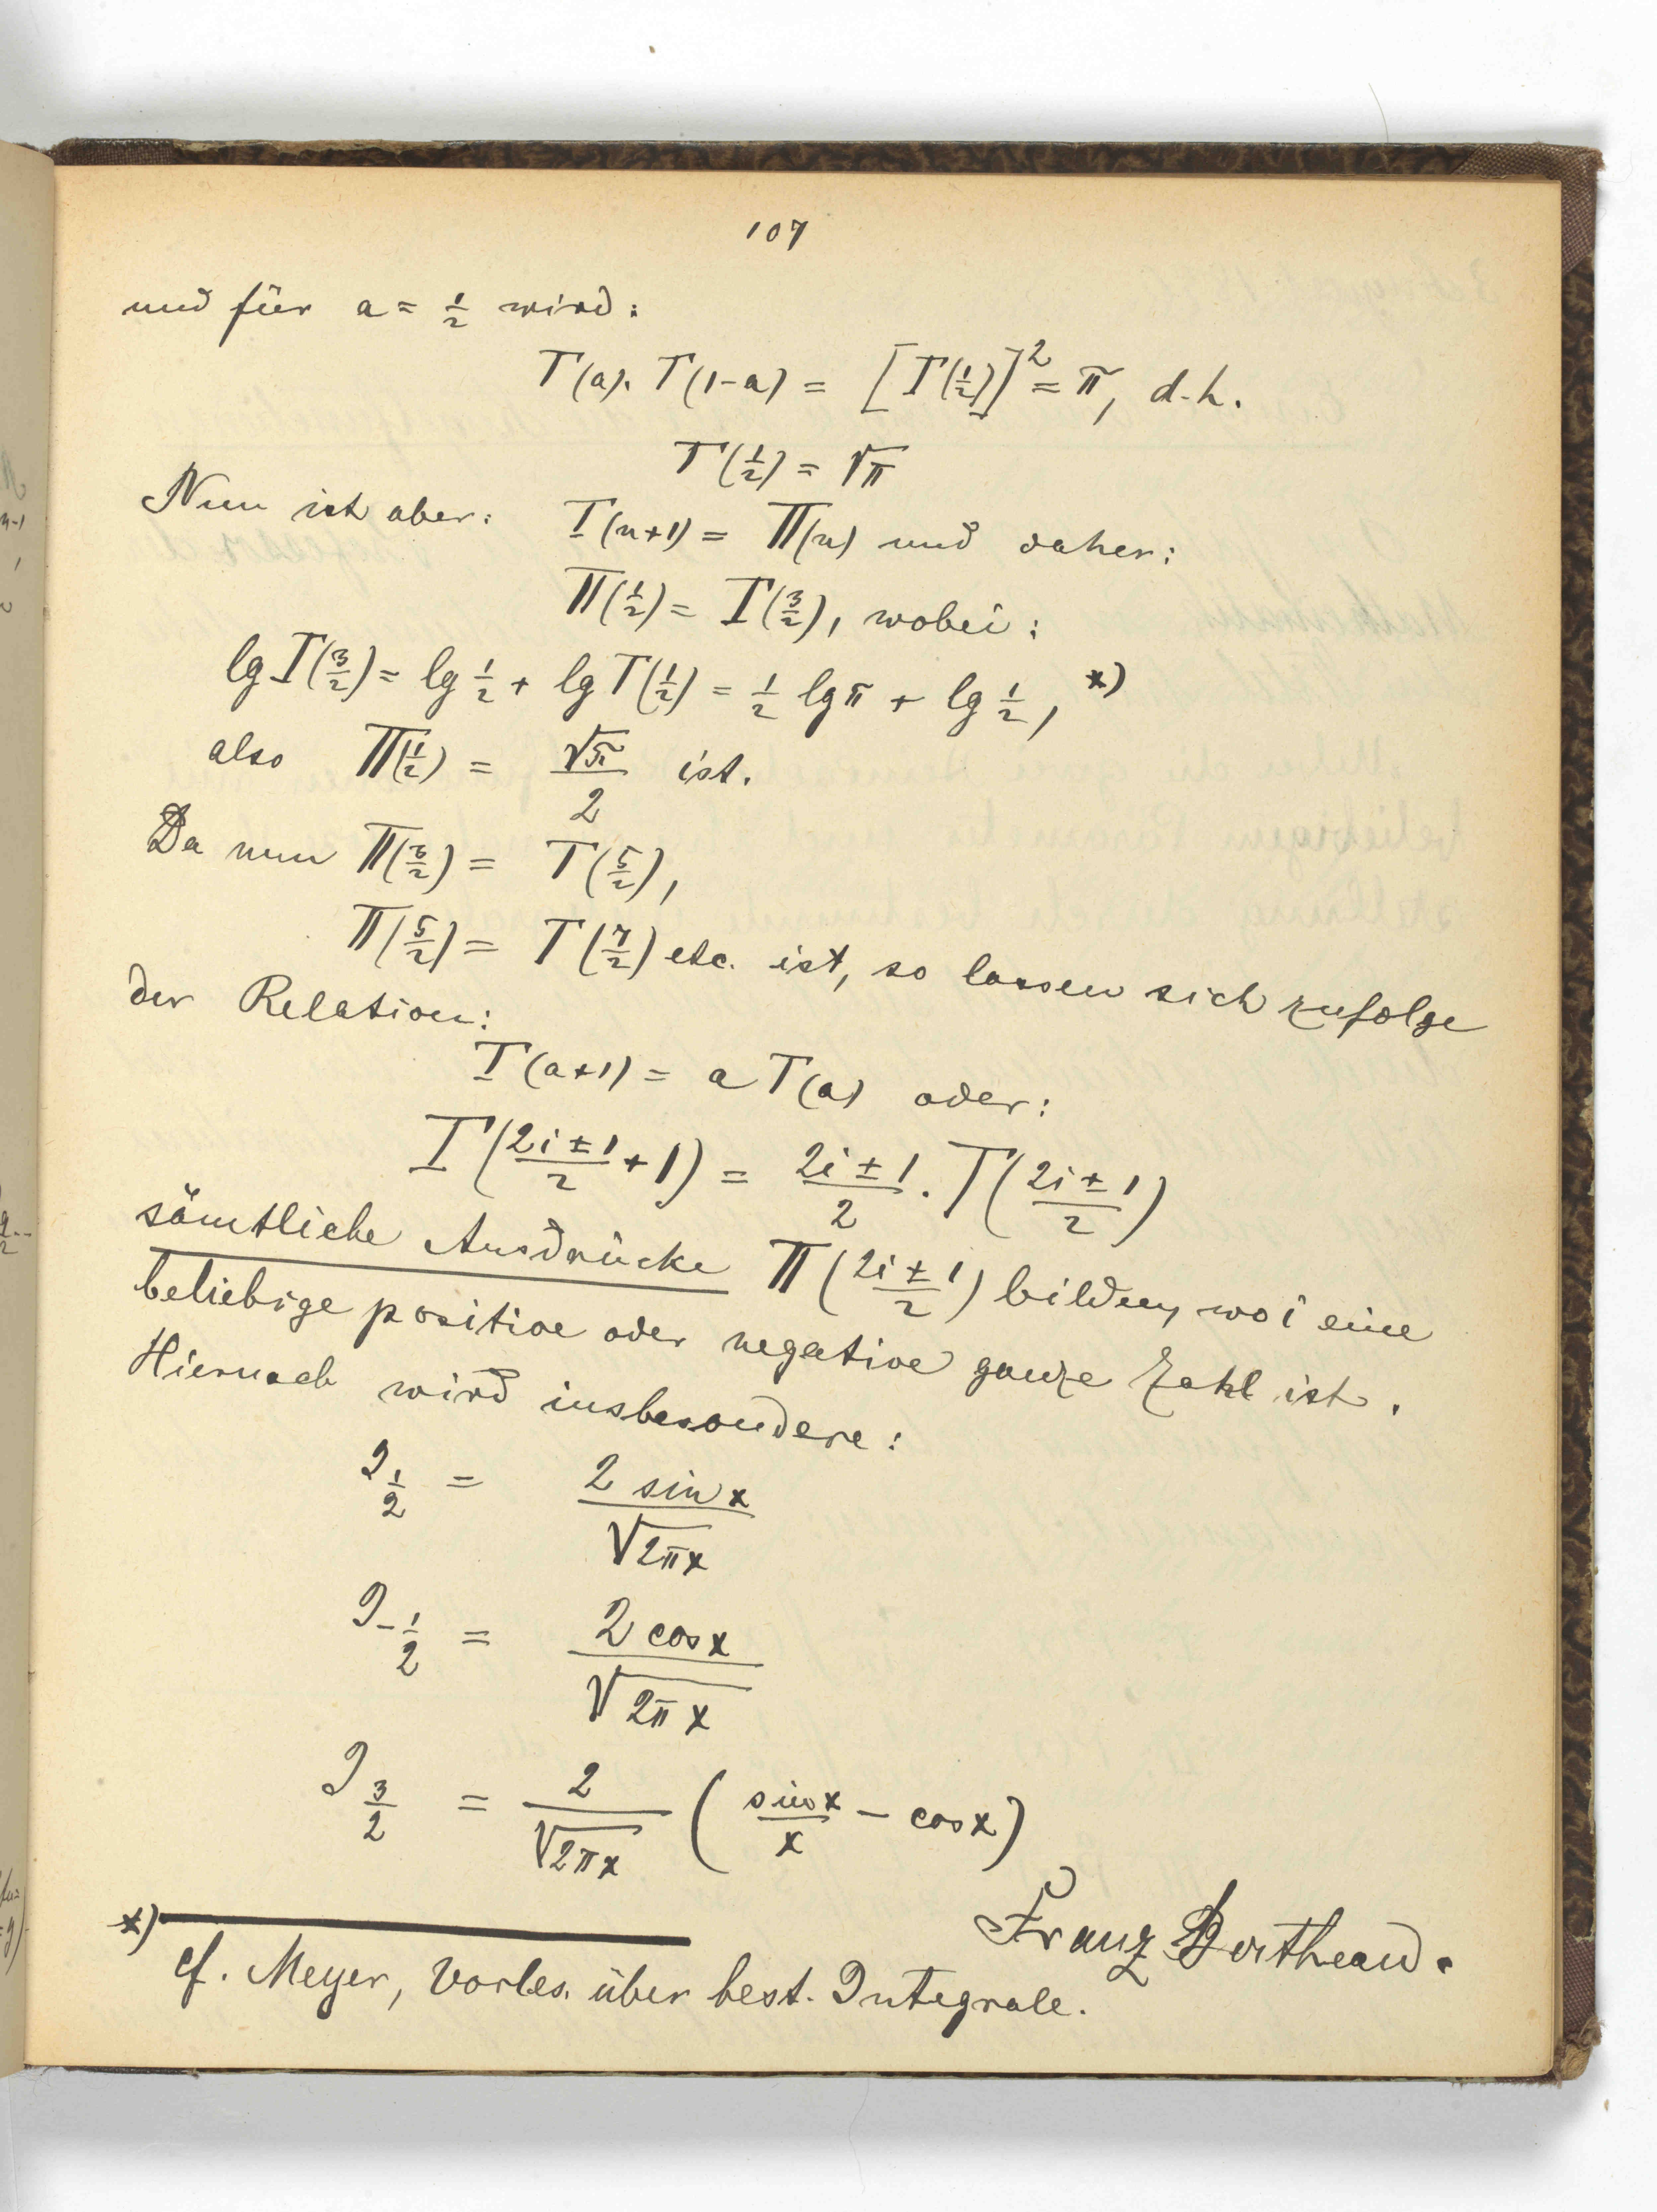 107
und für a = 1/2 wird:
Γ(a). Γ(1-a) = [Γ(1/2)]² = π, d.h.
Γ(1/2) = √π
Nun ist aber: Γ(n+1) = Π(n) und daher:
Π(1/2) = Γ(3/2), wobei:
lg Γ(3/2) = lg 1/2 + lg Γ(1/2) = 1/2 lg π + lg 1/2, *)
also Π(1/2) = √π/2 ist.
Da nun Π(3/2) = Γ(5/2),
Π(5/2) = Γ(7/2) etc. ist, so lassen sich zufolge
der Relation:
Γ(a+1) = a Γ(a) oder:
Γ((2i±1)/2 + 1) = (2i±1)/2 . Γ((2i±1)/2)
sämtliche Ausdrücke Π((2i±1)/2) bilden, wo i eine
beliebige positive oder negative ganze Zahl ist.
Hiernach wird insbesondere:
J_{1/2} = 2 sin x / √(2πx)
J_{-1/2} = 2 cos x / √(2πx)
J_{3/2} = 2/√(2πx) (sin x / x - cos x)
Franz
*) cf. Meyer, Vorles. über best. Integrale.